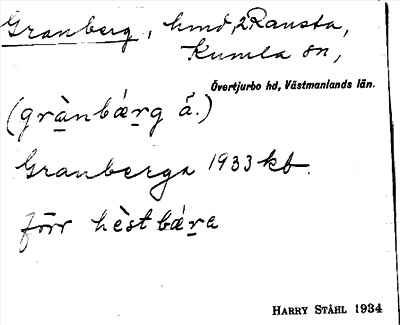 Granberg, hmd, 2 Ransta,
Kumla sn,
Övertjurbo hd, Västmanlands län.
(grànbǽrg å.)
Granberga 1933 kb.
förr hèstbǽra
HARRY STÅHL 1934